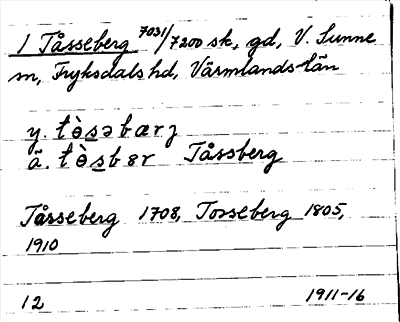 1 Tåsseberg 7031/7200 sk, gd, V. Sunne
sn, Fryksdals hd, Värmlands län
y. tòsəbærj
ä. tòsbər Tåssberg
Tåsseberg 1708, Tosseberg 1805,
1910
12 1911-16